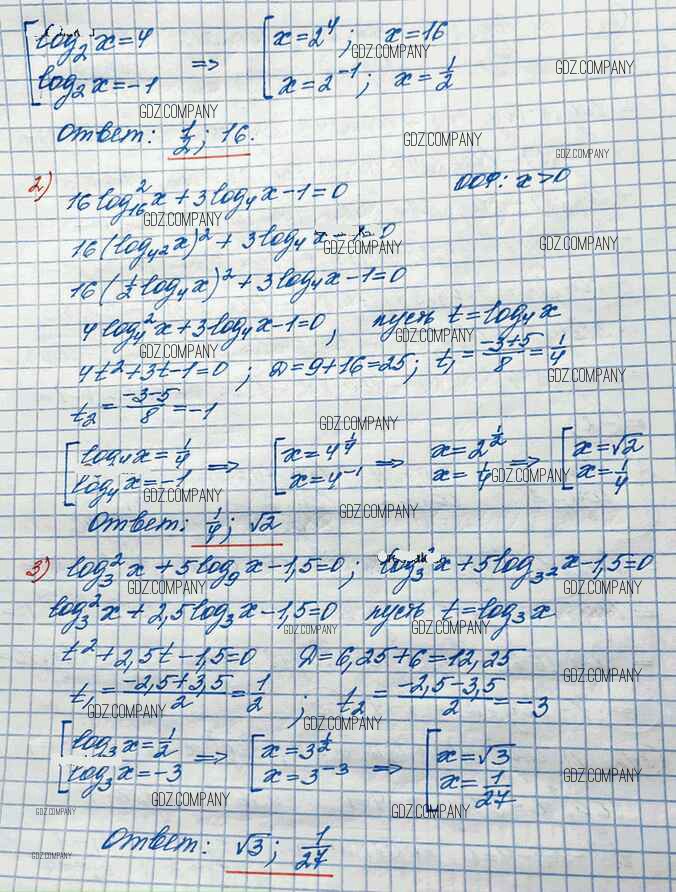 [log₂x=4 ⇒ [x=2⁴; x=16
[log₂x=-1 [x=2⁻¹; x=1/2
Ответ: 1/2; 16.
2) 16log²₁₆x+3log₄x-1=0 ООФ: x>0
16(log₄²x)²+3log₄x 0
16(1/2log₄x)²+3log₄x-1=0
4log₄²x+3log₄x-1=0, пусть t=log₄x
4t²+3t-1=0; D=9+16=25; t₁=(-3+5)/8=1/4
t₂=(-3-5)/8=-1
[log₄x=1/4 ⇒ [x=4^(1/4) ⇒ x=2^(1/2) ⇒ [x=√2
[log₄x=-1 [x=4⁻¹ x=1/4 [x=1/4
Ответ: 1/4; √2
3) log₃²x+5log₉x-1,5=0; log₃²x+5log₃²x-1,5=0
log₃²x+2,5log₃x-1,5=0 пусть t=log₃x
t²+2,5t-1,5=0 D=6,25+6=12,25
t₁=(-2,5+3,5)/2=1/2; t₂=(-2,5-3,5)/2=-3
[log₃x=1/2 ⇒ [x=3^(1/2) ⇒ [x=√3
[log₃x=-3 [x=3⁻³ [x=1/27
Ответ: √3; 1/27
GDZ.COMPANY